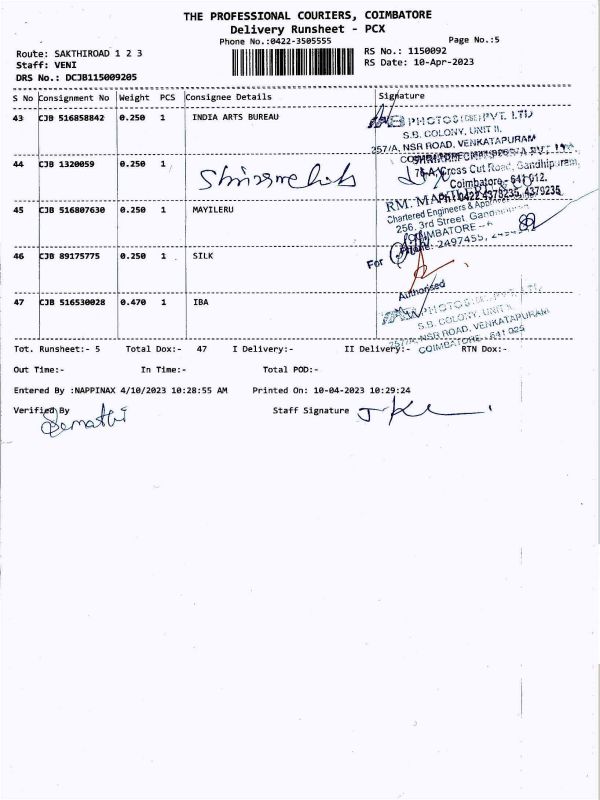 THE PROFESSIONAL COURIERS, COIMBATORE
Delivery Runsheet - PCX
Phone No.:0422-3505555
Page No.:5
Route: SAKTHIROAD 1 2 3
RS No.: 1150092
Staff: VENI
RS Date: 10-Apr-2023
DRS No.: DCJB115009205
S No Consignment No Weight PCS Consignee Details Signature
43 CJB 516858842 0.250 1 INDIA ARTS BUREAU
PHOTOS PVT. LTD
S.B. COLONY, UNIT II,
257/A, NSR ROAD, VENKATAPURAM
44 CJB 1320059 0.250 1
76-A, Cross Cut Road, Gandhipuram,
Coimbatore - 641 012.
Ph: 0422 4378235, 4379235
45 CJB 516807630 0.250 1 MAYILERU
Chartered Engineers &
256, 3rd Street
COIMBATORE
46 CJB 89175775 0.250 1 SILK
For
Authorised
47 CJB 516530028 0.470 1 IBA
S.B. COLONY, UNIT
257/A, NSR ROAD, VENKATAPURAM
COIMBATORE - 641 025
Tot. Runsheet:- 5 Total Dox:- 47 I Delivery:- II Delivery:- RTN Dox:-
Out Time:- In Time:- Total POD:-
Entered By :NAPPINAX 4/10/2023 10:28:55 AM Printed On: 10-04-2023 10:29:24
Verified By Staff Signature